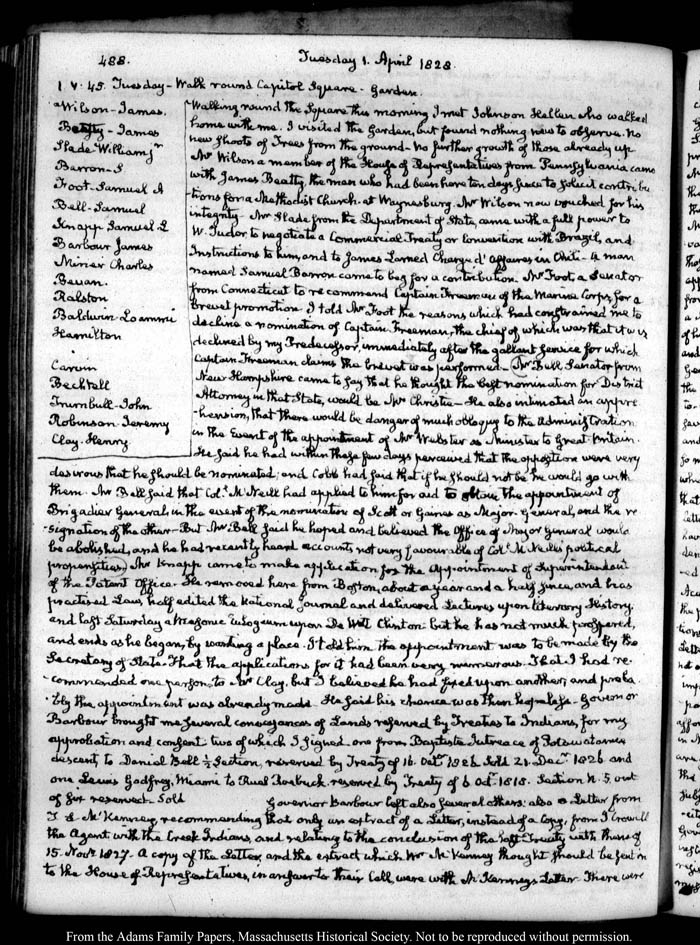 488.
Tuesday 1. April 1828.
1. V: 45. Tuesday - Walk round Capitol Square - Garden.
Wilson - James.
Beatty - James
Slade William jr
Barron - S
Foot - Samuel A
Bell - Samuel
Knapp Samuel L
Barbour James
Miner Charles
Bevan.
Ralston
Baldwin Loammi
Hamilton
Carvin
Bechtell
Trumbull - John
Robinson Jeremy
Clay. Henry
Walking round the Square this morning I met Johnson Hellen who walked
home with me. I visited the Garden, but found nothing new to observe. No
new shoots of Trees from the ground - No further growth of those already up.
Mr Wilson a member of the House of Representatives from Pennsylvania came
with James Beatty, the man who had been here ten days since to solicit contribu
tions for a Methodist Church at Waynesburg. Mr Wilson now vouched for his
integrity - Mr Slade from the Department of State, came with a full power to
W. Tudor to negotiate a Commercial Treaty or Convention with Brazil, and
Instructions to him, and to James Larned Chargé d'Affaires in Chili - A man
named Samuel Barron came to beg for a contribution. Mr Foot, a Senator
from Connecticut to recommend Captain Freeman of the Marine Corps, for a
Brevet promotion. I told Mr Foot the reasons which had constrained me to
decline a nomination of Captain Freeman, the chief of which was that it was
declined by my Predecessor, immediately after the gallant service for which
Captain Freeman claims the brevet was performed - Mr Bell Senator from
New Hampshire came to say that he thought the best nomination for District
Attorney in that State, would be Mr Christie - He also intimated an appre
hension, that there would be danger of much obloquy to the Administration
in the Event of the appointment of Mr Webster as Minister to Great Britain.
He said he had within these few days perceived that the opposition were very
desirous that he should be nominated; and Cobb had said that if he should not be he would go with
them. Mr Bell said that Col. McNeill had applied to him for aid to obtain the appointment of
Brigadier General in the event of the nomination of Scott or Gaines as Major-General, and the re
signation of the other - But Mr Bell said he hoped and believed the Office of Major General would
be abolished, and he had recently heard accounts not very favourable of Col. McNeill's political
propensities. Mr Knapp came to make application for the Appointment of Superintendent
of the Patent Office. He removed here from Boston, about a year and a half since, and has
practised Law, half edited the National Journal and delivered Lectures upon Literary History,
and last Saturday a Masonic Eulogium upon De Witt Clinton. but he has not much prospered,
and ends as he began, by wanting a place. I told him the appointment was to be made by the
Secretary of State - That the applications for it had been very numerous. That I had re
commended one person to Mr Clay, but I believed he had fixed upon another, and proba
bly the appointment was already made. He said his chance was then hopeless. Governor
Barbour brought me several conveyances of Lands reserved by Treaties to Indians, for my
approbation and consent two of which I signed. one from Baptiste of Potawatamie
descent to Daniel Bell ½ Section, reserved by Treaty of 16. Octr 1826 Sold 21. Decr 1826 and
one Lewis Godfrey, Miami to Ruel Roebuck reserved by Treaty of 6. Octr 1818. Section N. 5 out
of six reserved. Sold Governor Barbour left also several others: also a Letter from
T. L. McKenney, recommending that only an extract of a Letter, instead of a Copy, from Crowell
the Agent with the Creek Indians, and relating to the conclusion of the last Treaty with them of
15. Novr 1827. A copy of the Letter, and the extract which Mr McKenney thought should be sent
to the House of Representatives, in answer to their Call were with McKenney's Letter. There were
From the Adams Family Papers, Massachusetts Historical Society. Not to be reproduced without permission.